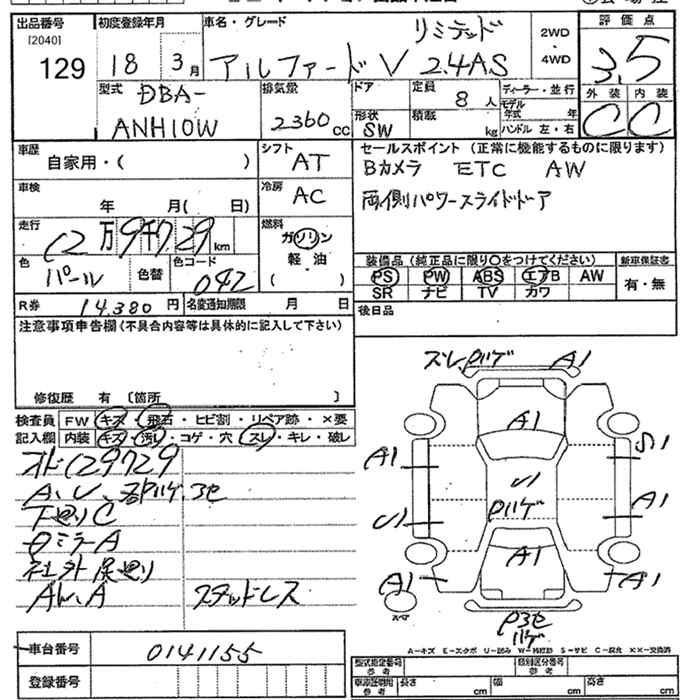 出品番号 [2040] 129
初度登録年月 18 3月
車名・グレード リミテッド
アルファードV 2.4AS
2WD・4WD
評価点 3.5
外装 内装
C C
型式 DBA-
ANH10W
排気量 2360cc
ドア
形状 SW
定員 8人
積載 kg
ディーラー・並行
モデル年式 年
ハンドル 左・右
車歴 自家用・( )
シフト AT
車検 年 月( 日)
冷房 AC
走行 12万9千729km
燃料 ガソリン 軽油 ( )
色 パール 色替
色コード 042
R券 14,380円
名変通知期限 月 日
セールスポイント (正常に機能するものに限ります)
Bカメラ ETC AW
両側パワースライドドア
装備品 (純正品に限り○をつけてください)
PS PW ABS エアB AW
SR ナビ TV カワ
新車保証書 有・無
後日品
注意事項申告欄(不具合内容等は具体的に記入して下さい)
修復歴 有 〔箇所 〕
検査員 FW キズ・飛石・ヒビ割・リペア跡・×要
記入欄 内装 キズ・汚レ・コゲ・穴・スレ・キレ・破レ
オドC29729
下廻りC
ロミラーA
社外足廻り
AW.A スタッドレス
スレ.Pハゲ A1
A1
A1 S1
U1
U1 Pハゲ A1
A1
A1 A1
スペア
P3セ
ハゲ
A-キズ E-エクボ U-凹み W-補修跡 S-サビ C-腐食 ××-交換済
車台番号 0141155
登録番号
型式指定番号 参考
類別区分番号 参考
車庫証明用 参考 長さ cm 幅 cm 高さ cm